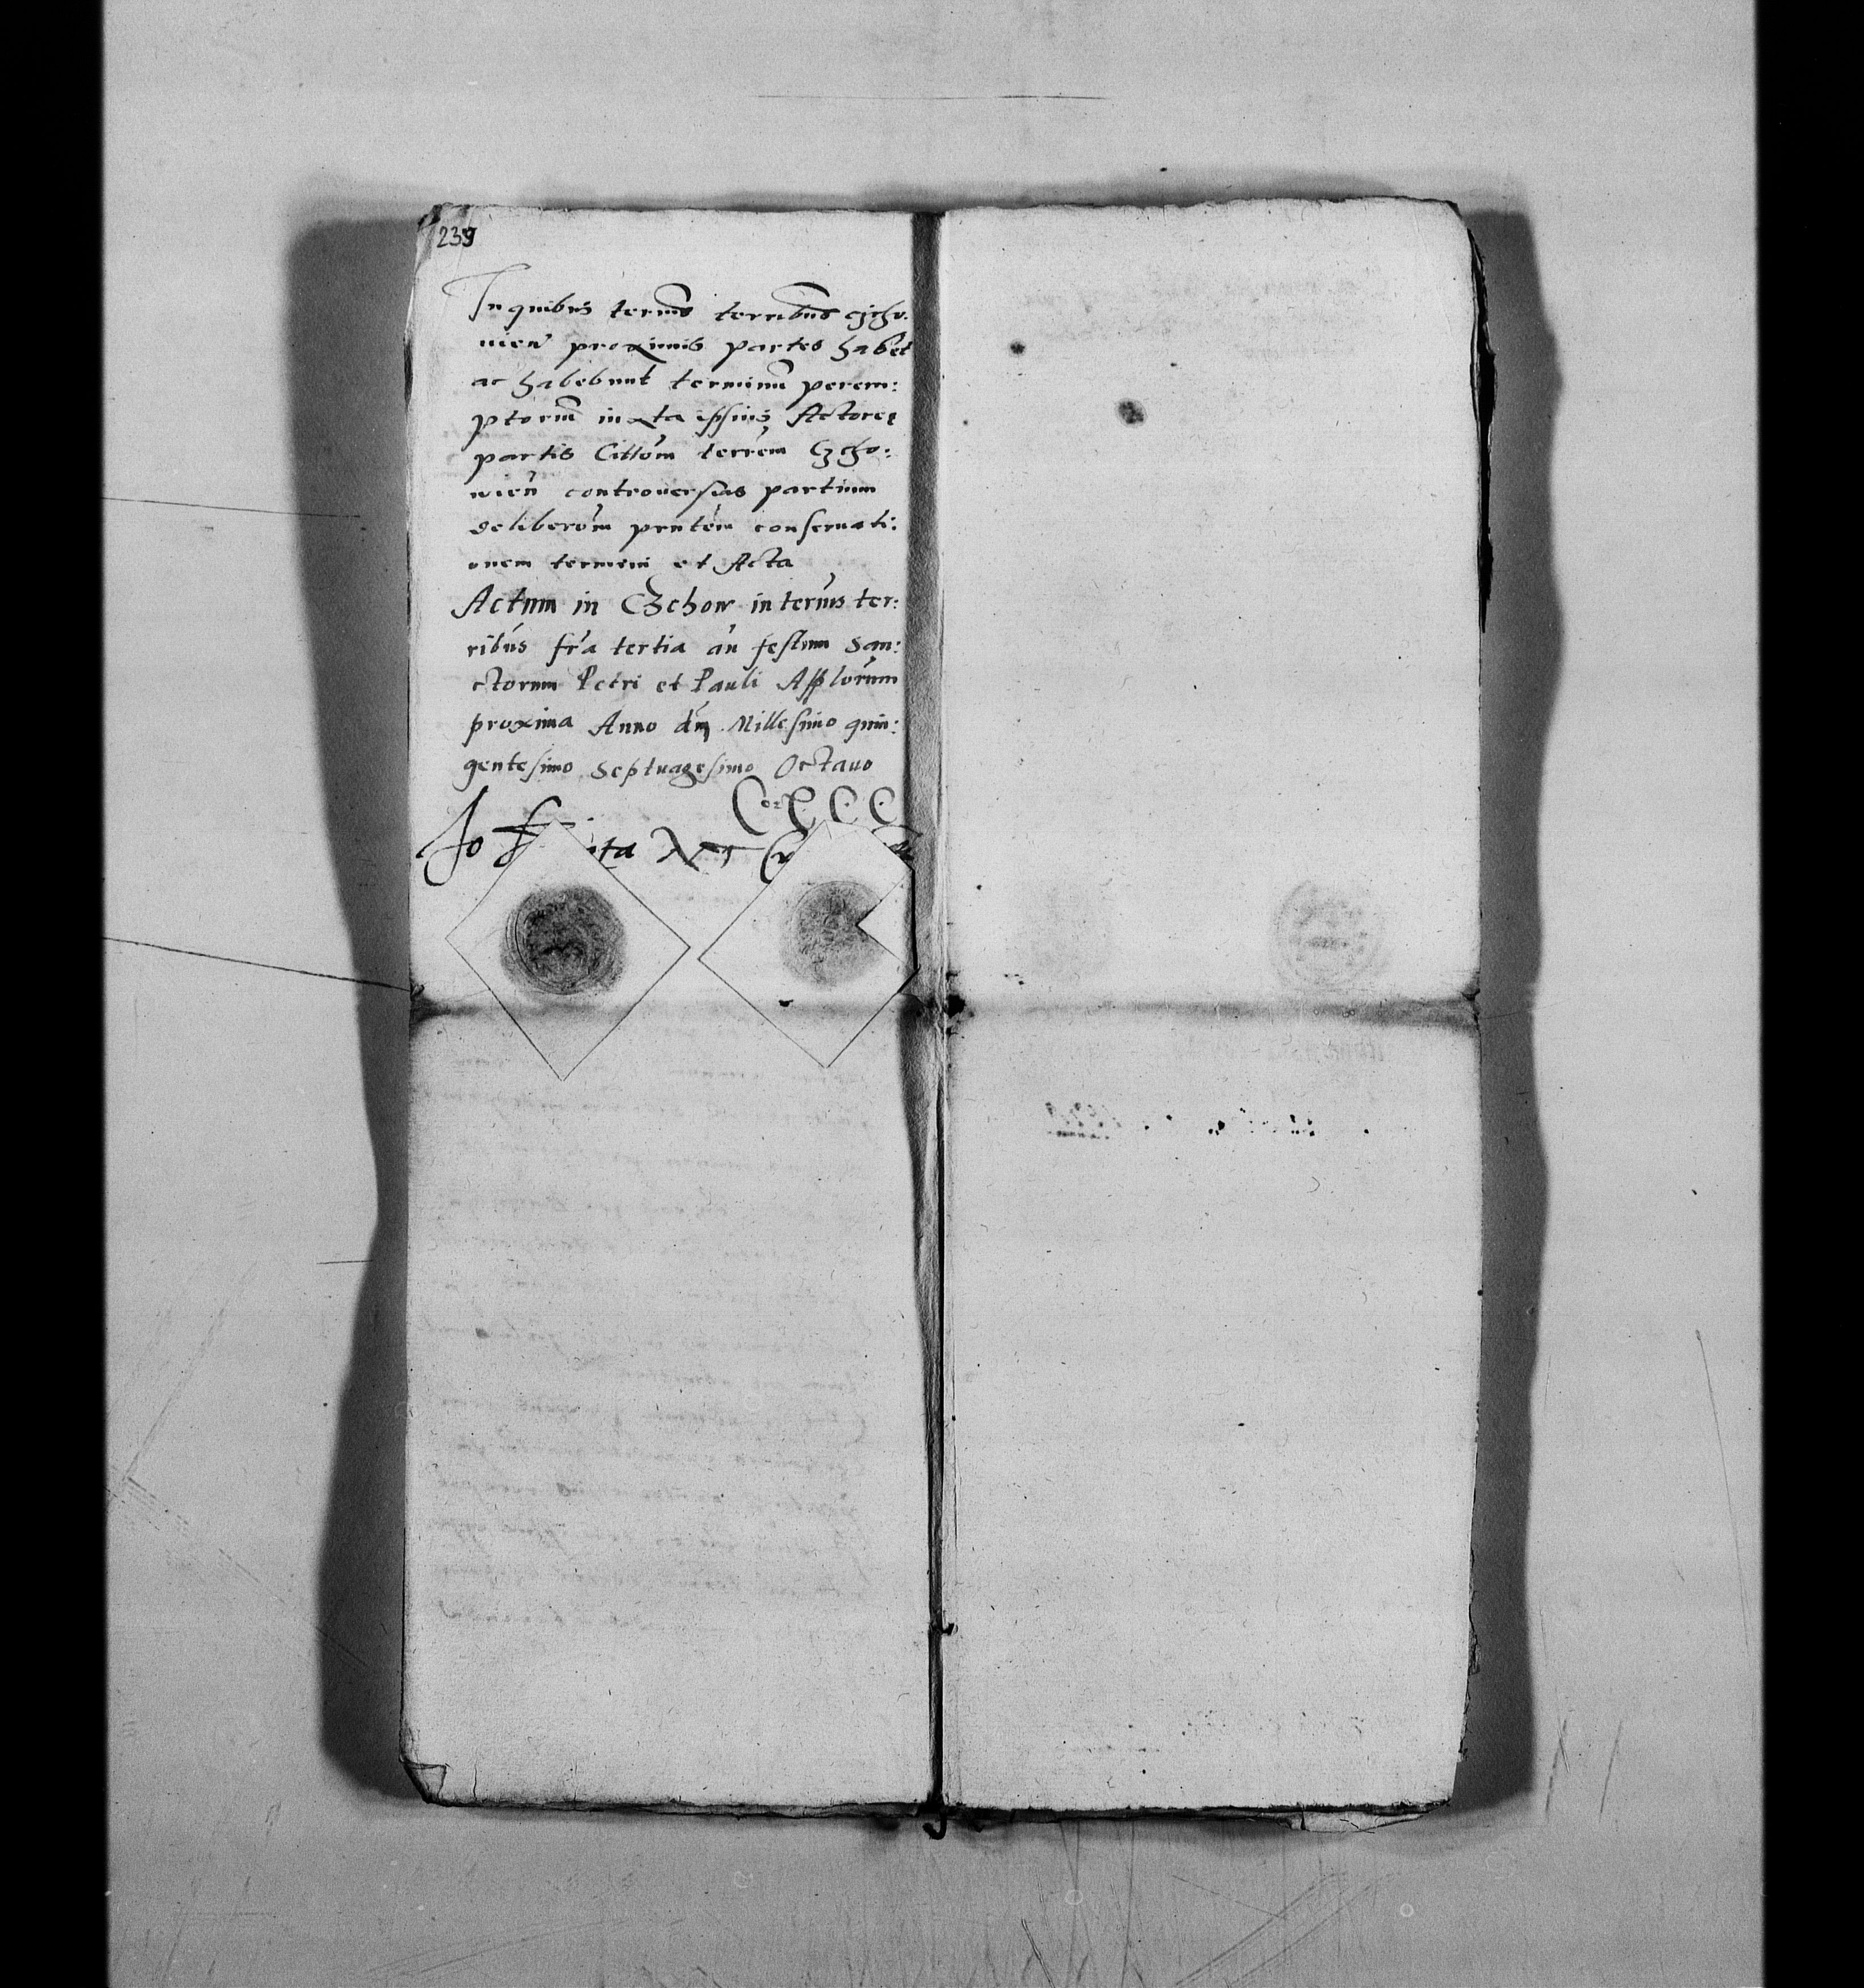 239
In quibus termis terribus Czcho:
vien proximis partes habet
ac habebunt terminu perem:
ptorium iuxta ipsius Actoree
partis Cittom terrem Czcho:
vien controversias partium
deliberom prntem conservati:
onem termini et Acta
Actum in Czchow in termis ter:
ribus fra tertia an festum San:
ctorum Petri et Pauli Applorum
proxima Anno dni Millesimo quin:
gentesimo Septuagesimo Octavo
Cor
Jo